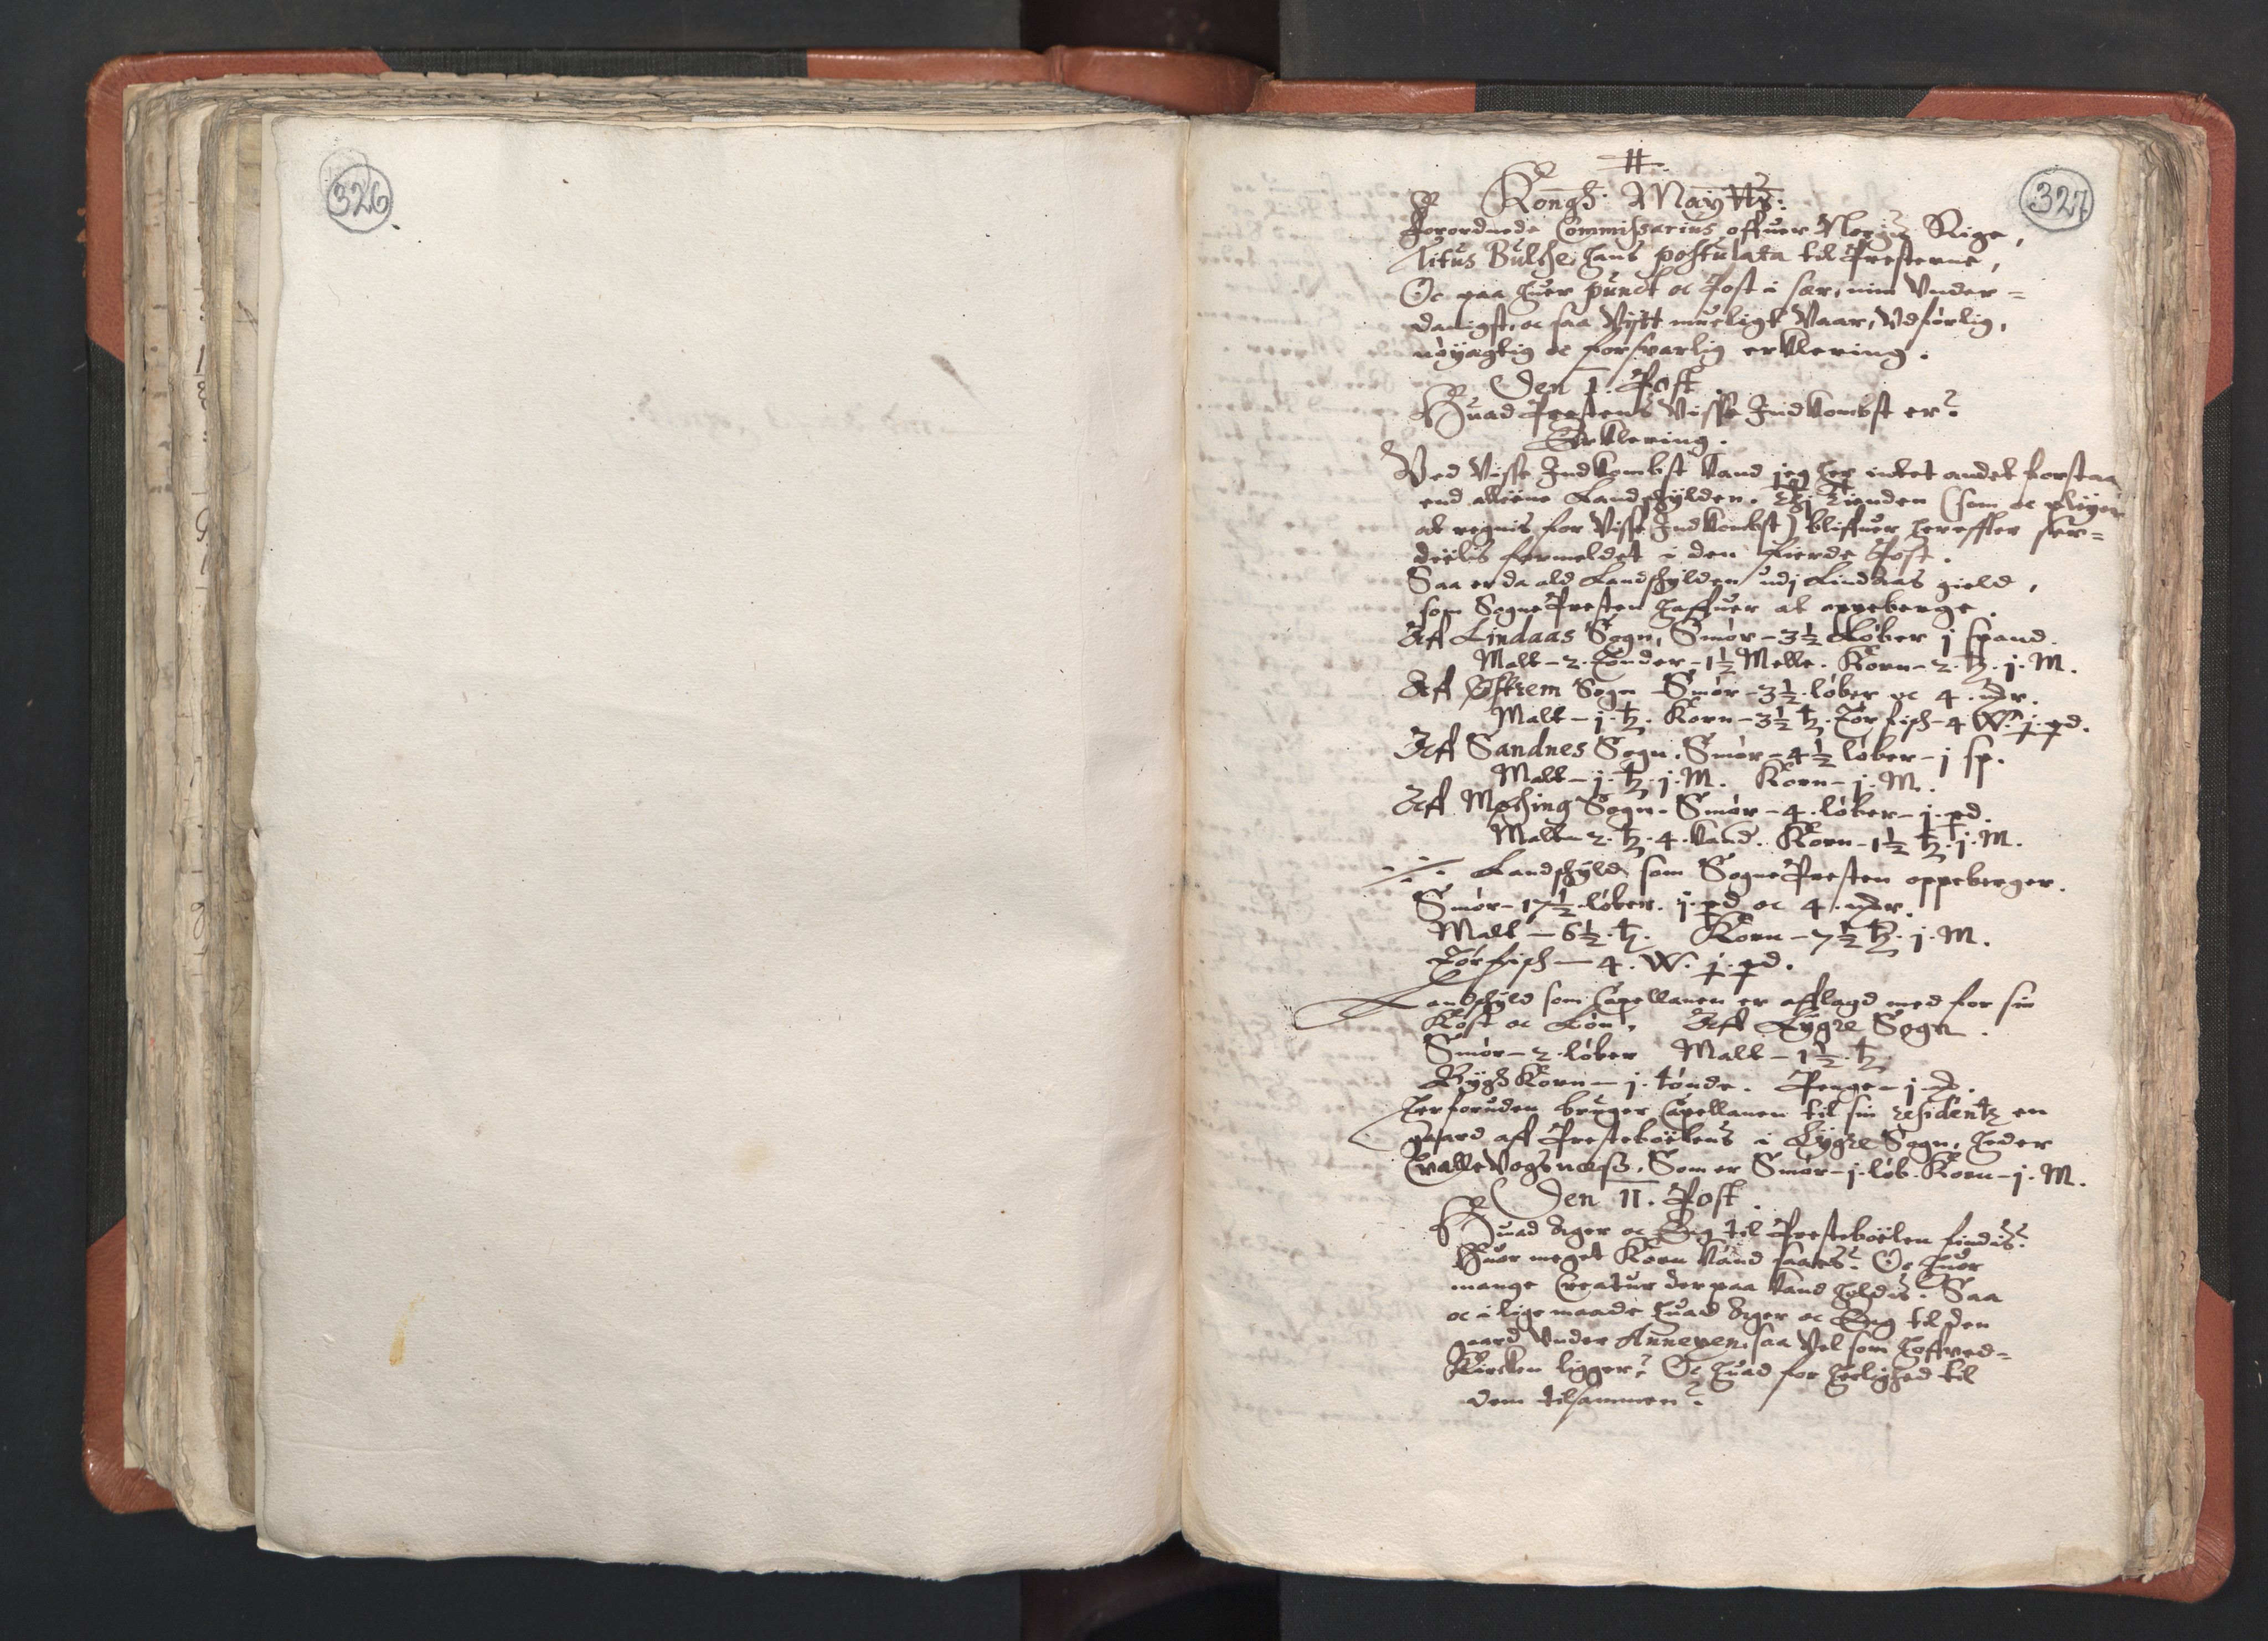 326
327
#.
Kongl: Maytts:
Forordnede Commissarius offuer Norgis Rige,
Titus Bulche, hans postulata til Presterne,
Oc paa huer punct oc Post i sær, min Vnder=
danigst, oc saa Vijtt mueligt Vaar, Vdførlig,
nøyagtig oc forsvarlig erklering.
Den 1. Post
Huad Prestens Visse Indkombst er?
Erklering.
Ved Visse Indkombst kand jeg her intet andet forstaa
end alleene Landschylden. Thj Tienden (som oc pleyer
at regnis for Visse Indkombst) bliffuer hereffter sær=
deelis formeldet i den fierde Post.
Saa er da ald Landschylden udj Lindaas gield,
som SognePresten haffuer at oppeberge.
Aff Lindaas Sogn, Smør - 3½ Løber j spand.
Malt - 2. Tønder - 1½ Melle. Korn - 2. tƺ. j. M.
Aff Østrem Sogn Smør - 3½. løber oc 4. mr.
Malt - j. tƺ. Korn - 3½ tƺ. Tør fisch - 4 W. j. pd.
Aff Sandnes Sogn. Smør - 4½ løber - j sp.
Malt - j. tƺ. j. M. Korn - j. M.
Aff Møching Sogn. Smør - 4. løber - j. pd.
Malt - 2. tƺ. 4. kand. Korn - 1½ tƺ. j. M.
Landschyld som SognePresten oppeberger.
Smør - 17½ løber. j. pd oc 4. mr.
Malt - 6½. tƺ. Korn - 7½ tƺ. j. M.
Tørfisch - 4. W. j. pd.
Landschyld som Capellanen er afflagd med for sin
Kost oc Løn. Aff Lygre Sogn.
Smør - 2. løber Malt - 1½. tƺ.
Bygh Korn - j. tønde. Penge - j
Herforuden bruger Capellanen til sin residentz en
gaard aff Presteboelens i Lygre Sogn, heder
Vogsness. Som er Smør - j. løb. Korn - j. M.
Den 11. Post.
Huad Ager oc Eng til Presteboelen findis?
Huor meget Korn kand saaes? Oc huor
mange Creatur der paa kand holdis? Saa
oc i lige maade huad Ager oc Eng til den
gaard Vnder Annexen, saa Vel som hoffved=
Kircken ligger? Oc huad for herlighed til
dem tilsammen?